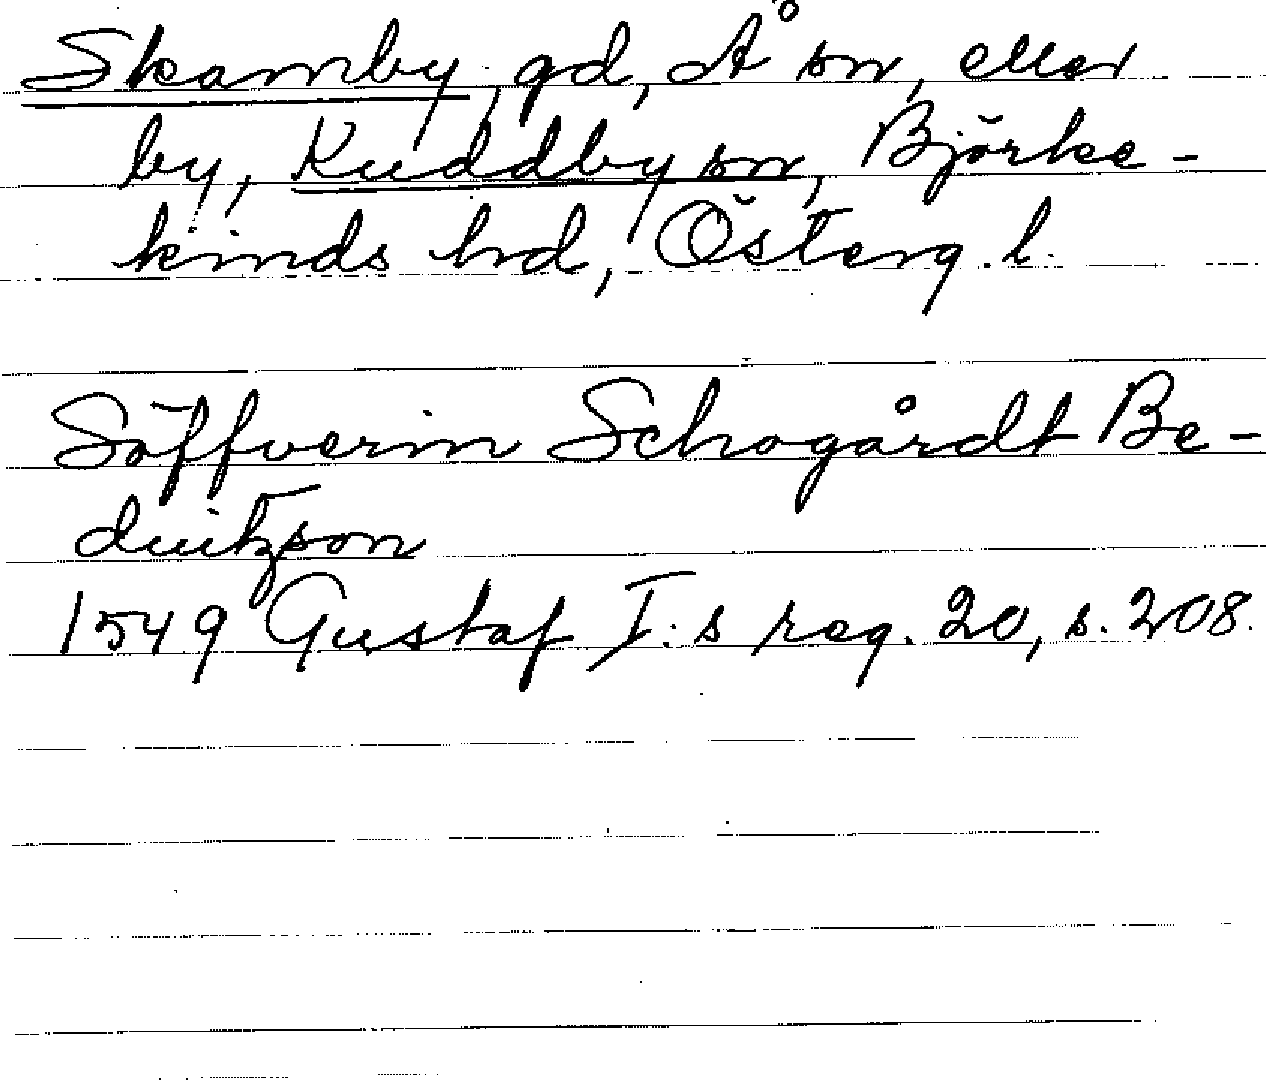 Skamby, gd, Å sn, eller
by, Kuddby sn, Björke-
kinds hd, Österg. l.
Söffverin Schogårdt Be-
duikson
1549 Gustaf I:s reg. 20, s. 208.